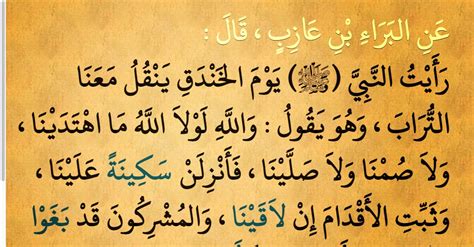 عَنِ البَرَاءِ بْنِ عَازِبٍ ، قَالَ :
رَأَيْتُ النَّبِيَّ (ﷺ) يَوْمَ الخَنْدَقِ يَنْقُلُ مَعَنَا
التُّرَابَ ، وَهُوَ يَقُولُ : وَاللَّهِ لَوْلاَ اللَّهُ مَا اهْتَدَيْنَا ،
وَلاَ صُمْنَا وَلاَ صَلَّيْنَا ، فَأَنْزِلَنْ سَكِينَةً عَلَيْنَا ،
وَثَبِّتِ الأَقْدَامَ إِنْ لاَقَيْنَا ، وَالمُشْرِكُونَ قَدْ بَغَوْا